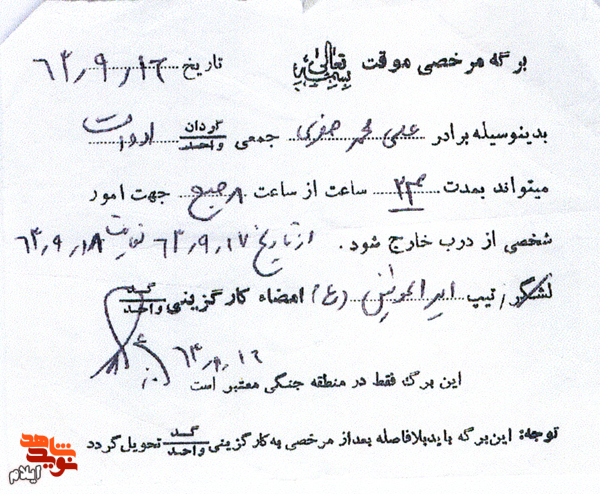 برگه مرخصی موقت بسمه تعالی تاریخ ۶۳٫۹٫۱۶
بدینوسیله برادر علی محمد صفری جمعی گردان واحد
میتواند بمدت ساعت از ساعت ۸ صبح جهت امور
شخصی از درب خارج شود . از تاریخ ۶۳٫۹٫۱۷ لغایت ۶۳٫۹٫۱۸
لشگر / تیپ امیرالمؤمنین (ع) امضاء کارگزینی گد واحد
این برگ فقط در منطقه جنگی معتبر است
توجه: این برگه باید بلافاصله بعد از مرخصی به کارگزینی گد واحد تحویل گردد
شاهد
نوید
ایلام